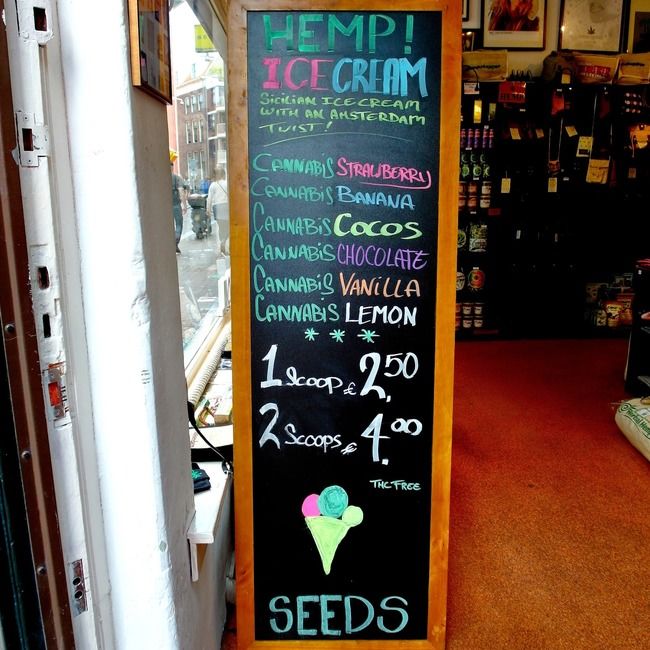 HEMP!
ICE CREAM
SICILIAN ICE CREAM
WITH AN AMSTERDAM
TWIST!
CANNABIS STRAWBERRY
CANNABIS BANANA
CANNABIS COCOS
CANNABIS CHOCOLATE
CANNABIS VANILLA
CANNABIS LEMON
* * *
1 Scoop € 2,50
2 Scoops € 4,00
THC FREE
SEEDS